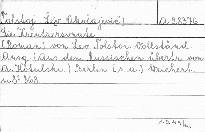 Tolstoj Lev Nikolajevič) A 28376
Die Kreutzersonate
(Roman) von Leo Tolstoi Vollständ.
Ausg. (Aus dem Russischen übers. von
A. ) Berlin (s.a.) Weichert
8° 168.